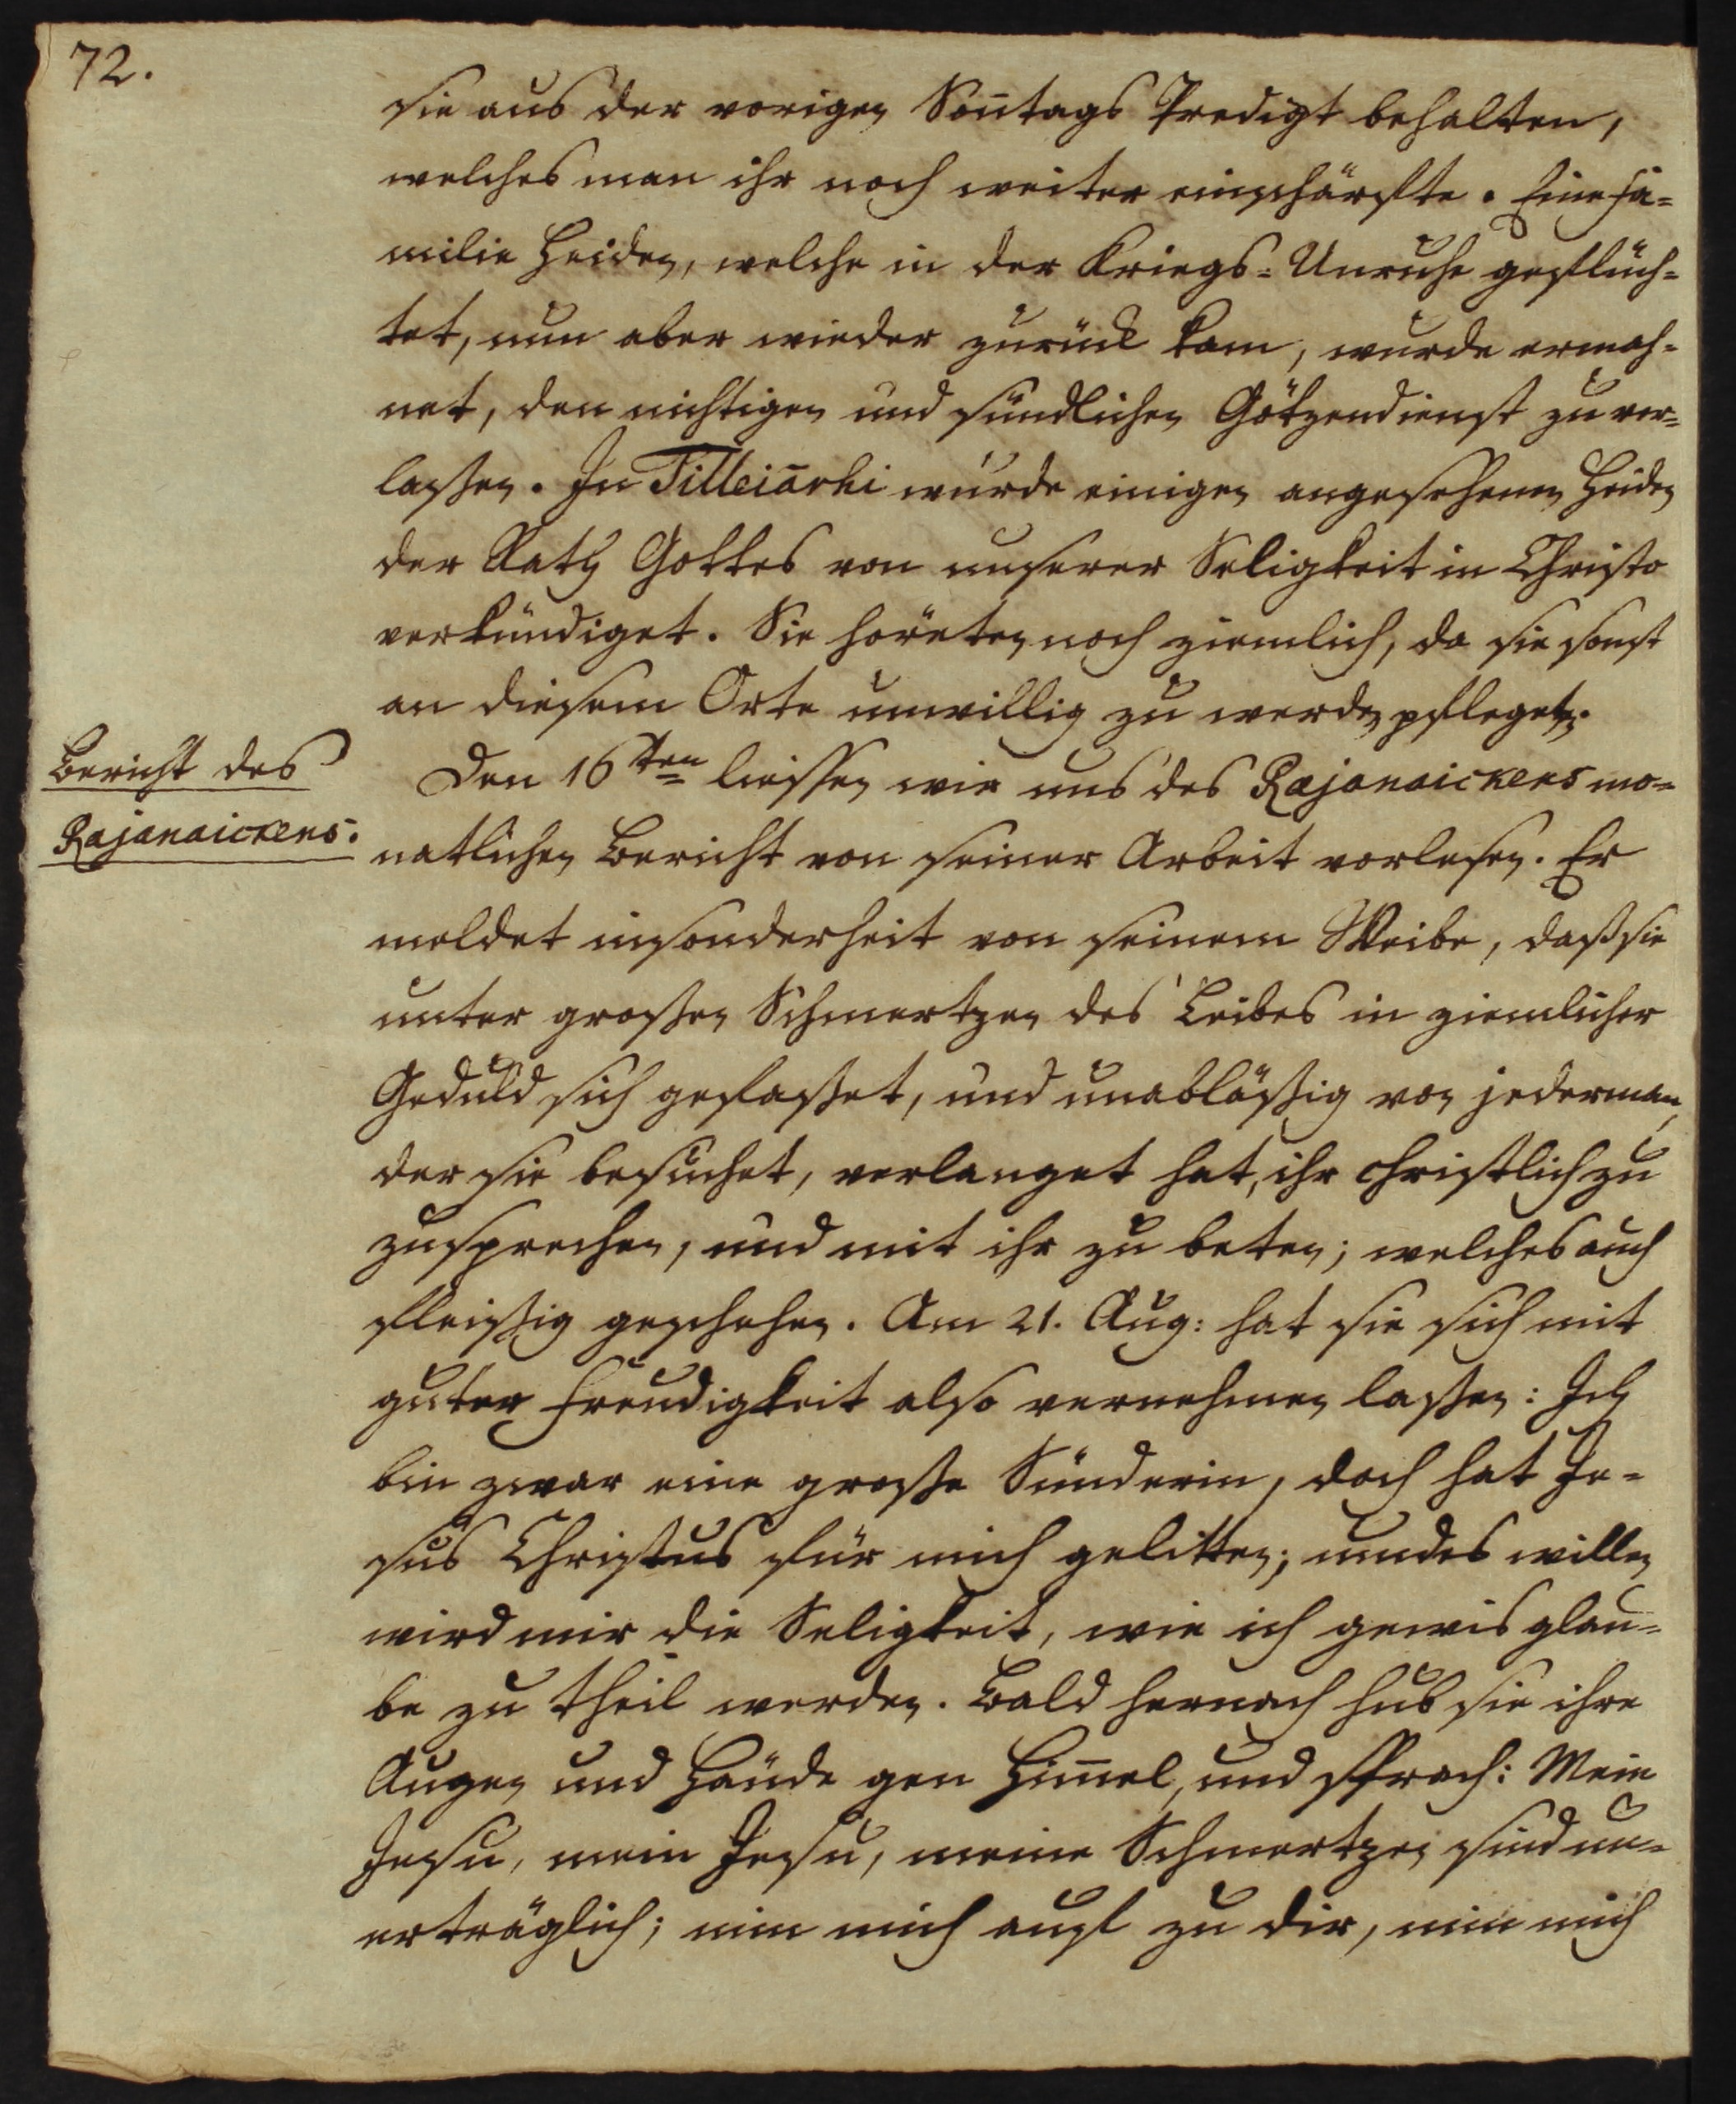 72.
sie aus der vorigen Son̄tags Predigt behalten,
welches man ihr noch weiter einschärfte. Eine Fa=
milie Heiden, welche in der Kriegs=Unruhe geflüch=
tet, nun aber wieder zurück kam, wurde ermah=
net, den nichtigen und sündlichen Götzendienst zu ver=
laßen. In Tilleiārhi wurde einigen angesehenen Heiden
der Rath Gottes von unserer Seligkeit in Christo
verkündiget. Sie höreten noch ziemlich, da sie sonst
an diesem Orte unwillig zu werden pflegeten.
Bericht des
Rajanaickens.
Den 16ten liessen wir uns des Rajanaickens mo=
natlichen Bericht von seiner Arbeit vorlesen. Er
meldet insonderheit von seinem Weibe, daß sie
unter großen Schmertzen des Leibes in ziemlicher
Geduld sich gefaßet, und unabläßig von jederman,
der sie besuchet, verlanget hat, ihr christlich zu
zusprechen, und mit ihr zu beten; welches auch
fleißig geschehen. Am 21. Aug: hat sie sich mit
guter Freudigkeit also vernehmen laßen: Ich
bin zwar eine große Sünderin, doch hat Je=
sus Christus für mich gelitten; um des willen
wird mir die Seligkeit, wie ich gewis glau=
be zu theil werden. Bald hernach hub sie ihre
Augen und Hände gen Him̄el, und sprach: Mein
Jesu, mein Jesu, meine Schmertzen sind un=
erträglich; nim mich auf zu dir, nim mich